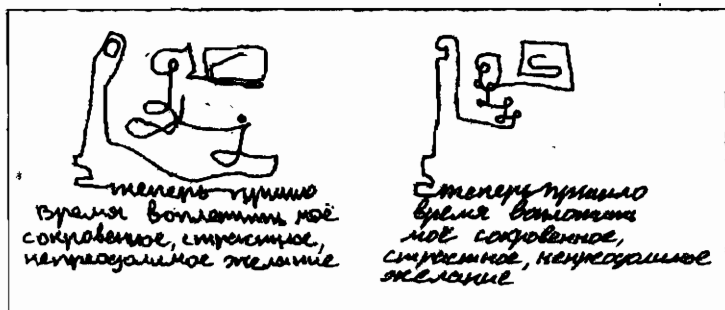 теперь пришло
время воплотить моё
сокровенное, страстное,
непреодолимое желание
теперь пришло
время воплотить
моё сокровенное,
страстное, непреодолимое
желание